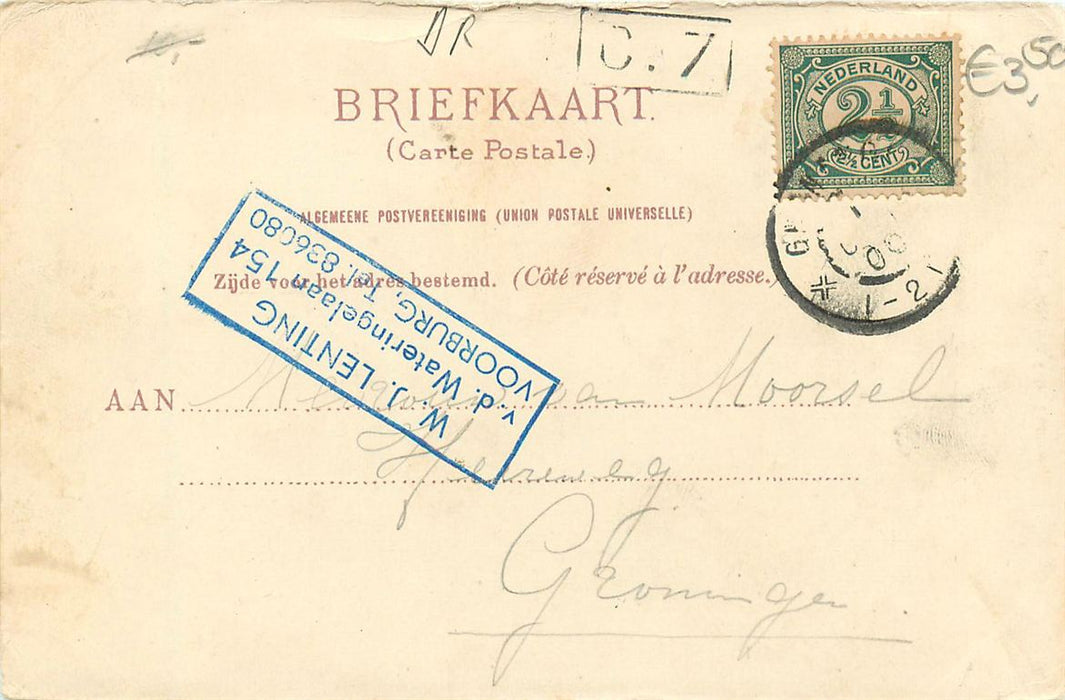 DR
C.7
€3,50
BRIEFKAART.
(Carte Postale.)
NEDERLAND
2½
2½ CENT
ALGEMEENE POSTVEREENIGING (UNION POSTALE UNIVERSELLE)
Zijde voor het adres bestemd. (Côté réservé à l'adresse.)
00
1-2
W. J. LENTING
v. d. Wateringelaan 154
VOORBURG, Tel. 836080
AAN van Moorsel
Heereweg
Groningen